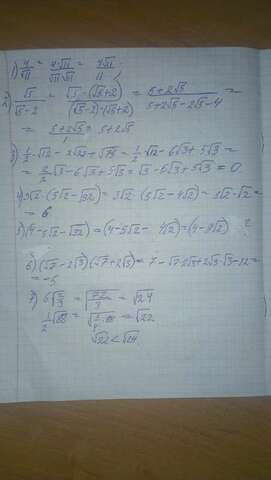 1) 4/√11 = 4·√11/√11·√11 = 4√11/11
2) √5/√5-2 = √5·(√5+2)/(√5-2)·(√5+2) = 5+2√5/5+2√5-2√5-4 =
= 5+2√5/1 = 5+2√5
3) 1/2·√12 - 2√27 + √75 = 1/2·√12 - 6√3 + 5√3 =
= 2/2√3 - 6√3 + 5√3 = √3 - 6√3 + 5√3 = 0
4) 3√2·(5√2-√32) = 3√2·(5√2-4√2) = 3√2·√2 =
= 6
5) (4-5√2-√32) = (4-5√2-4√2) = (4-9√2)
6) (√7-2√3)(√7+2√3) = 7-√7·2√3+2√3·√7-12 =
= -5
7) 6√2/3 = = √24
1/2 = = √22
√22 < √24